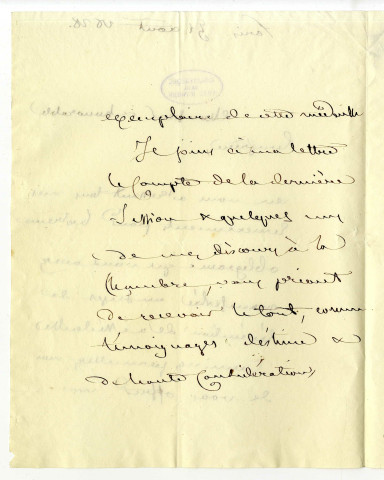 exemplaire de cette médaille
Je joins à ma lettre
le Compte de la dernière
Session & quelques uns
de mes discours à la
Chambre, vous priant
de recevoir le tout, comme
témoignages d'estime &
de haute Considération